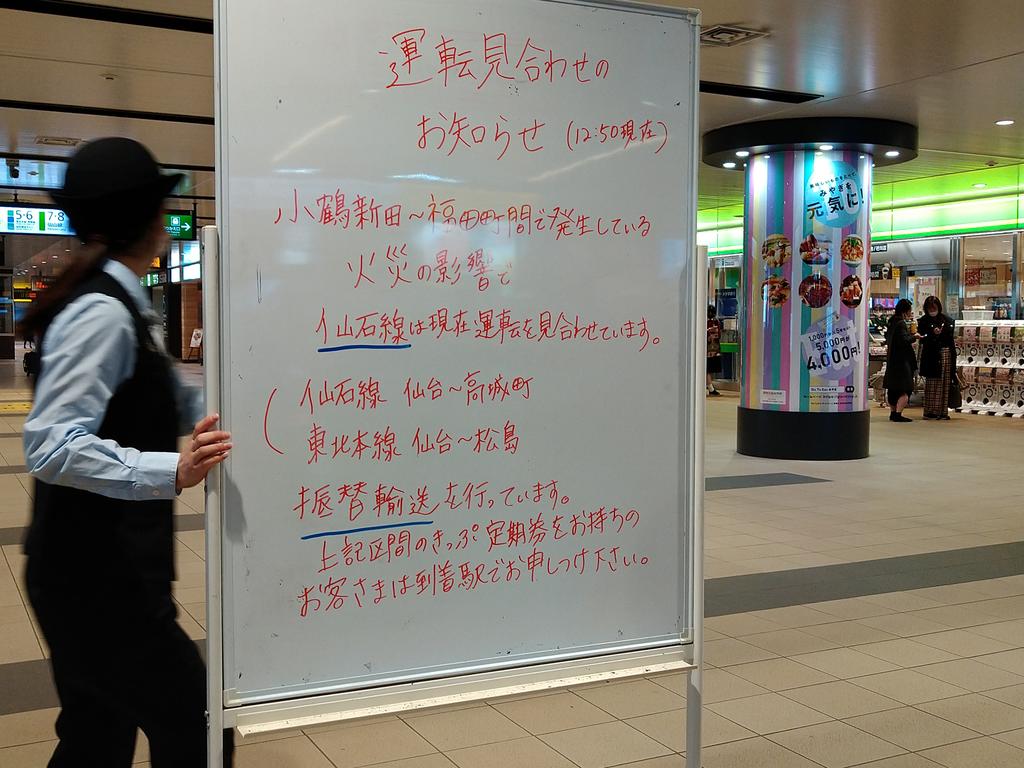 運転見合わせの
お知らせ (12:50現在)
小鶴新田~福田町間で発生している
火災の影響で
仙石線は現在運転を見合わせています。
仙石線 仙台~高城町
東北本線 仙台~松島
振替輸送を行っています。
上記区間のきっぷ定期券をお持ちの
お客さまは到着駅でお申しつけ下さい。
5・6
7・8
みやぎを
元気に!
5,000円が
4,000円!